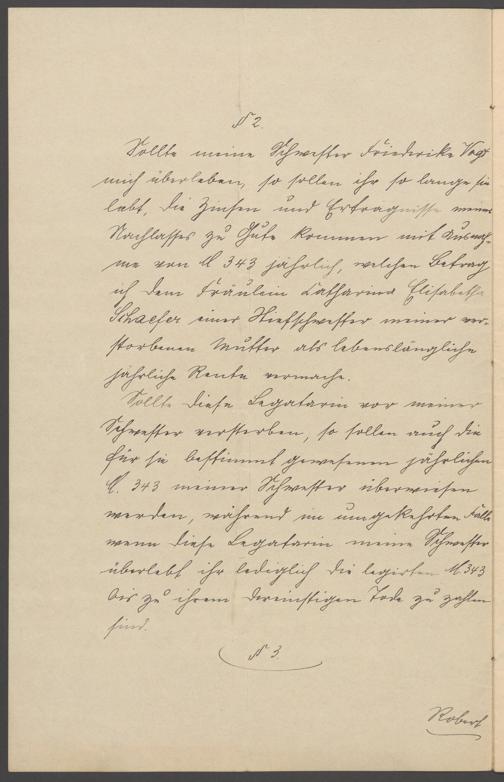 § 2.
Sollte meine Schwester Friederike Vogt
mich überleben, so sollen ihr so lange sie
lebt, die Zinsen und Erträgnisse meines
Nachlasses zu Gute kommen mit Ausnah-
me von M 343 jährlich, welchen Betrag
ich dem Fräulein Catharina Elisabetha
Schaefer einer Stiefschwester meiner ver-
storbenen Mutter als lebenslängliche
jährliche Rente vermache.
Sollte diese Legatarin vor meiner
Schwester versterben, so sollen auch die
für sie bestimmt gewesenen jährlichen
M. 343 meiner Schwester überwiesen
werden, während im umgekehrten Falle
wenn diese Legatarin meine Schwester
überlebt ihr lediglich die legirten M 343
bis zu ihrem dereinstigen Tode zu zahlen
sind.
§ 3.
Robert